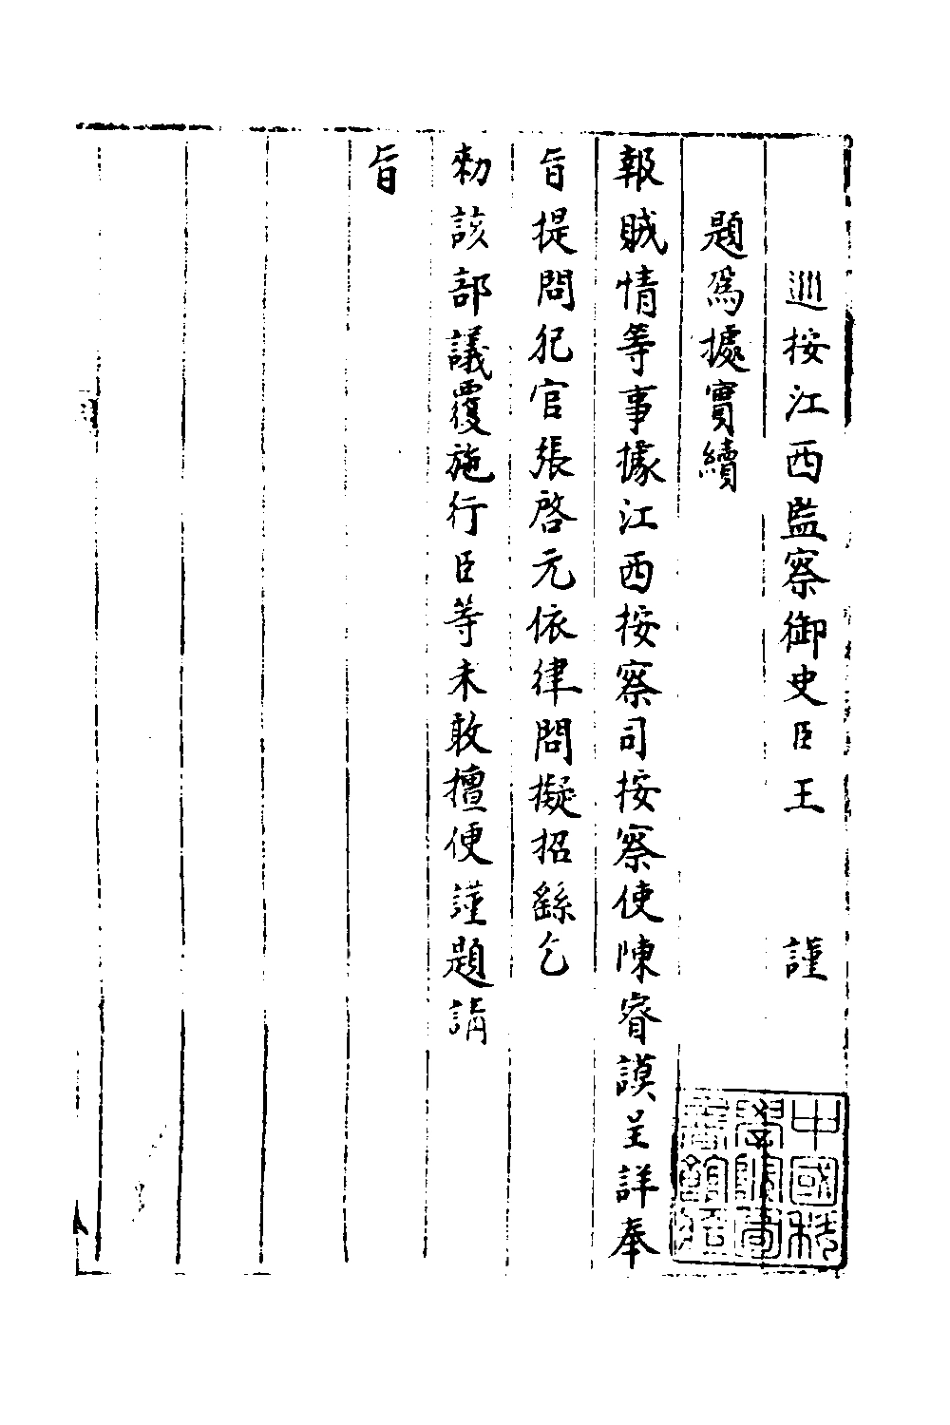 巡按江西監察御史臣王　謹
題爲據實續
報賊情等事據江西按察司按察使陳睿謨呈詳奉
旨提問犯官張啓元依律問擬招繇乞
勑該部議覆施行臣等未敢擅便謹題請
旨
中國科
學院圖書